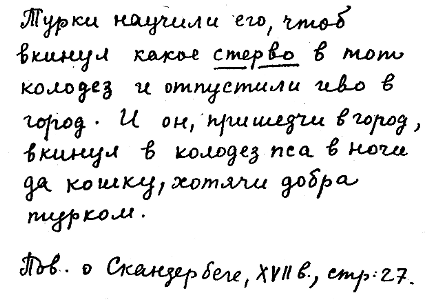 Турки научили его, чтоб
вкинул какое стерво в тот
колодез и отпустили ево в
город. И он, пришедчи в город,
вкинул в колодез пса в ночи
да кошку, хотячи добра
турком.
Пов. о Скандербеге, XVII в., стр. 27.